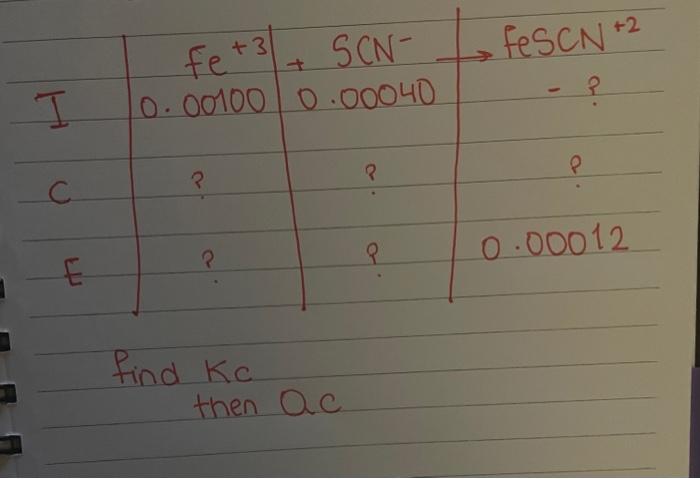 Fe+3 + SCN- → FeSCN+2
I 0.00100 0.00040 - ?
C ? ? ?
E ? ? 0.00012
find Kc
then Qc